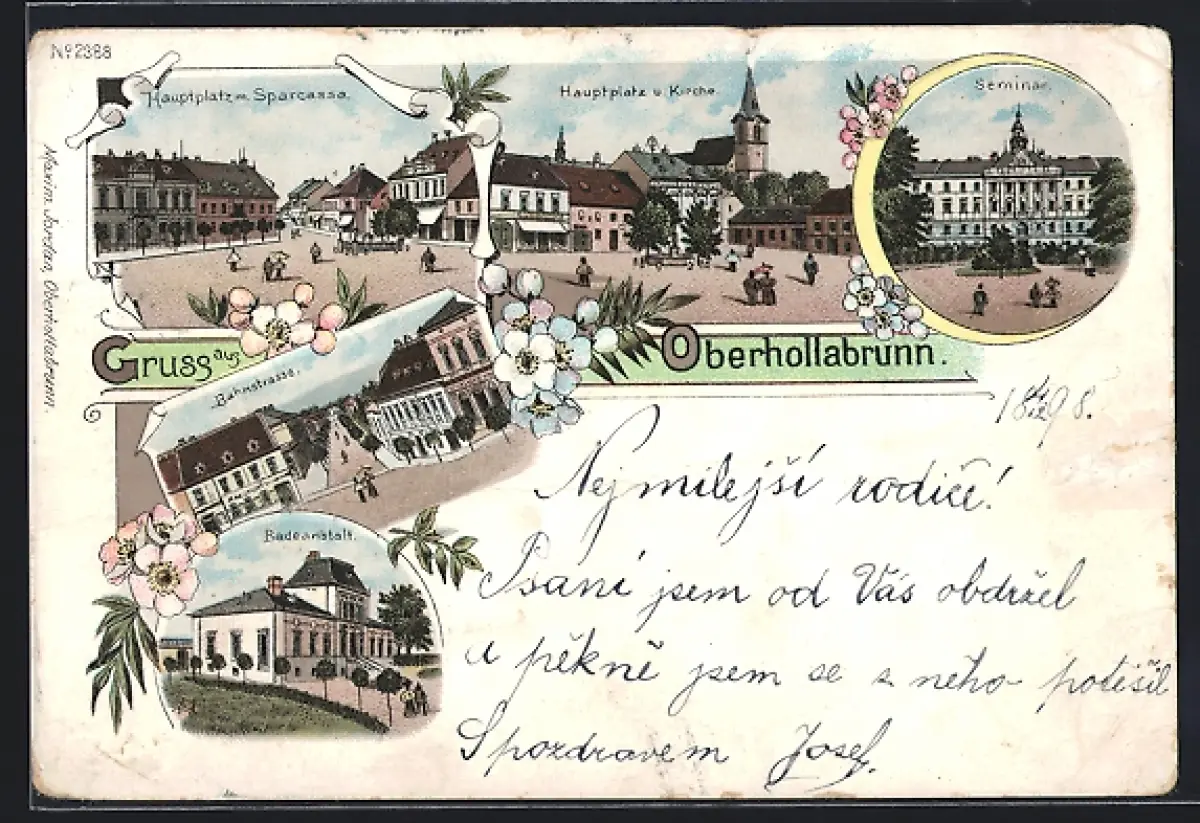 No 2388
Hauptplatz m. Sparcassa.
Hauptplatz u. Kirche.
Seminar.
Maxim. Jordan, Oberhollabrunn.
Gruss aus Oberhollabrunn.
Bahnstrasse.
Badeanstalt.
18 98.
Nejmilejší rodiče!
Psaní jsem od Vás obdržel
a pěkně jsem se z něho potěšil
S pozdravem Josef.